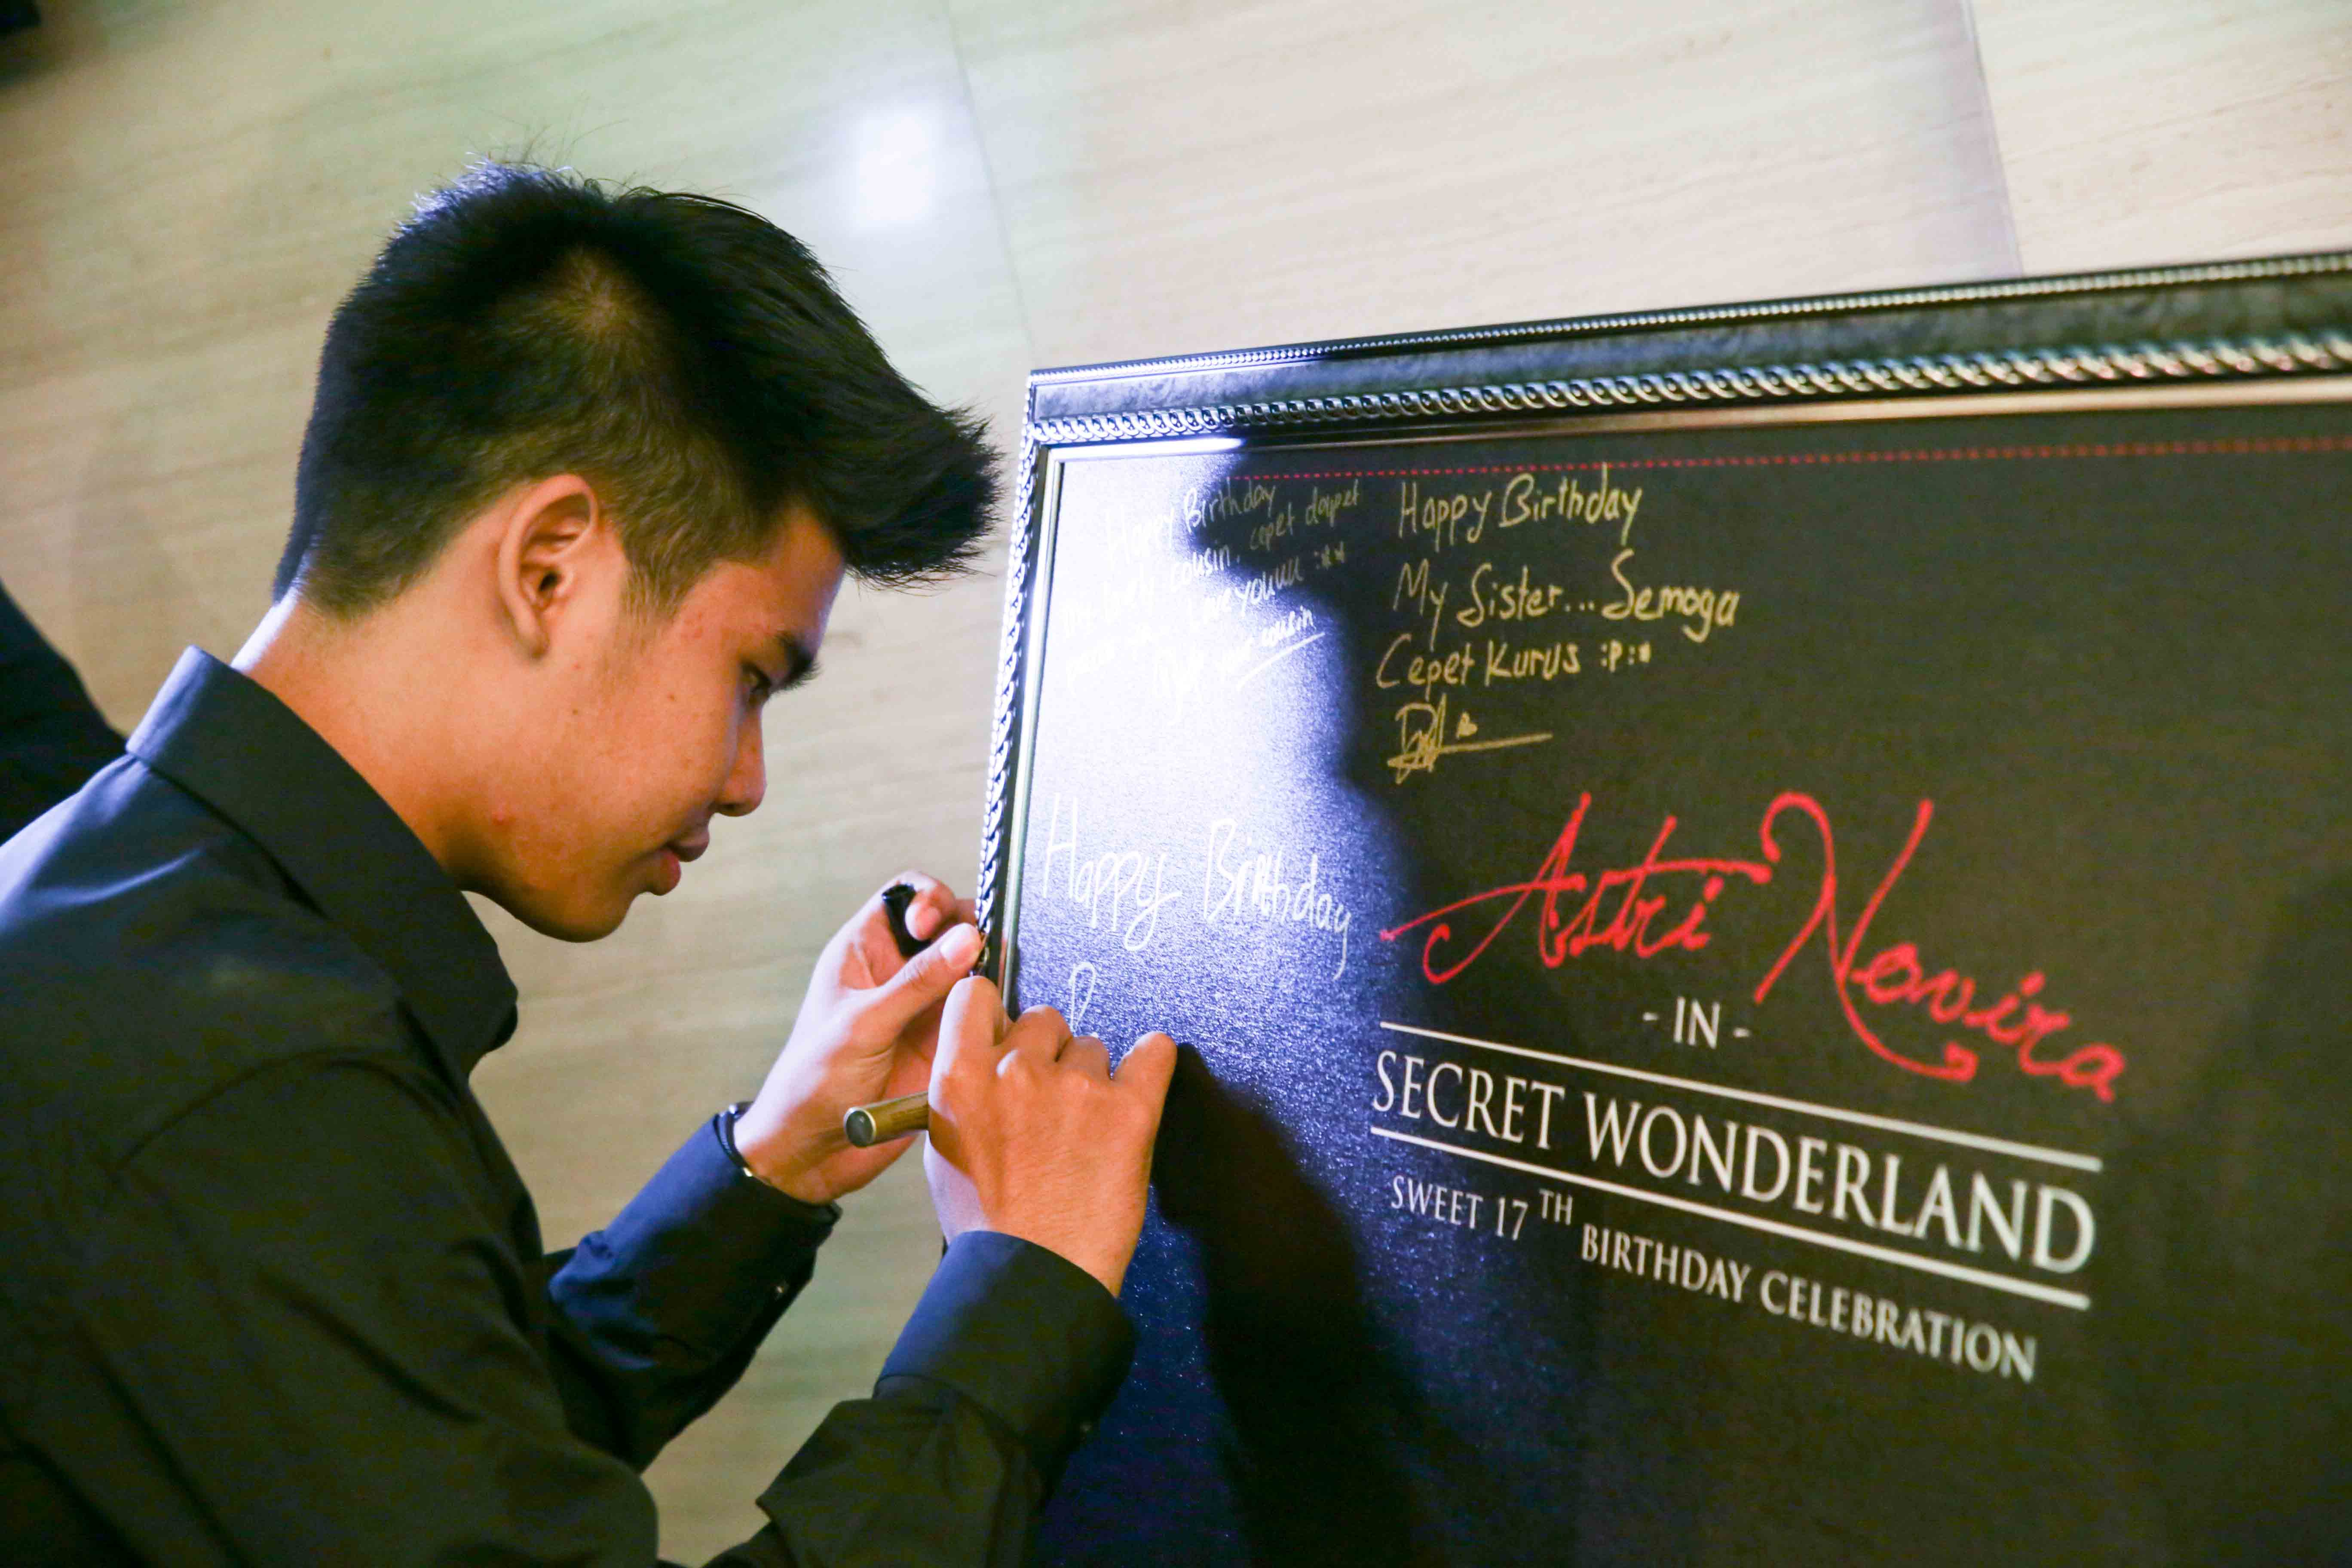 Happy Birthday
cousin. cepet dapet
Love youuu :**
cousin
Happy Birthday
My Sister... Semoga
Cepet Kurus :P:*
Happy Birthday
Astri Novira
- IN -
SECRET WONDERLAND
SWEET 17TH BIRTHDAY CELEBRATION